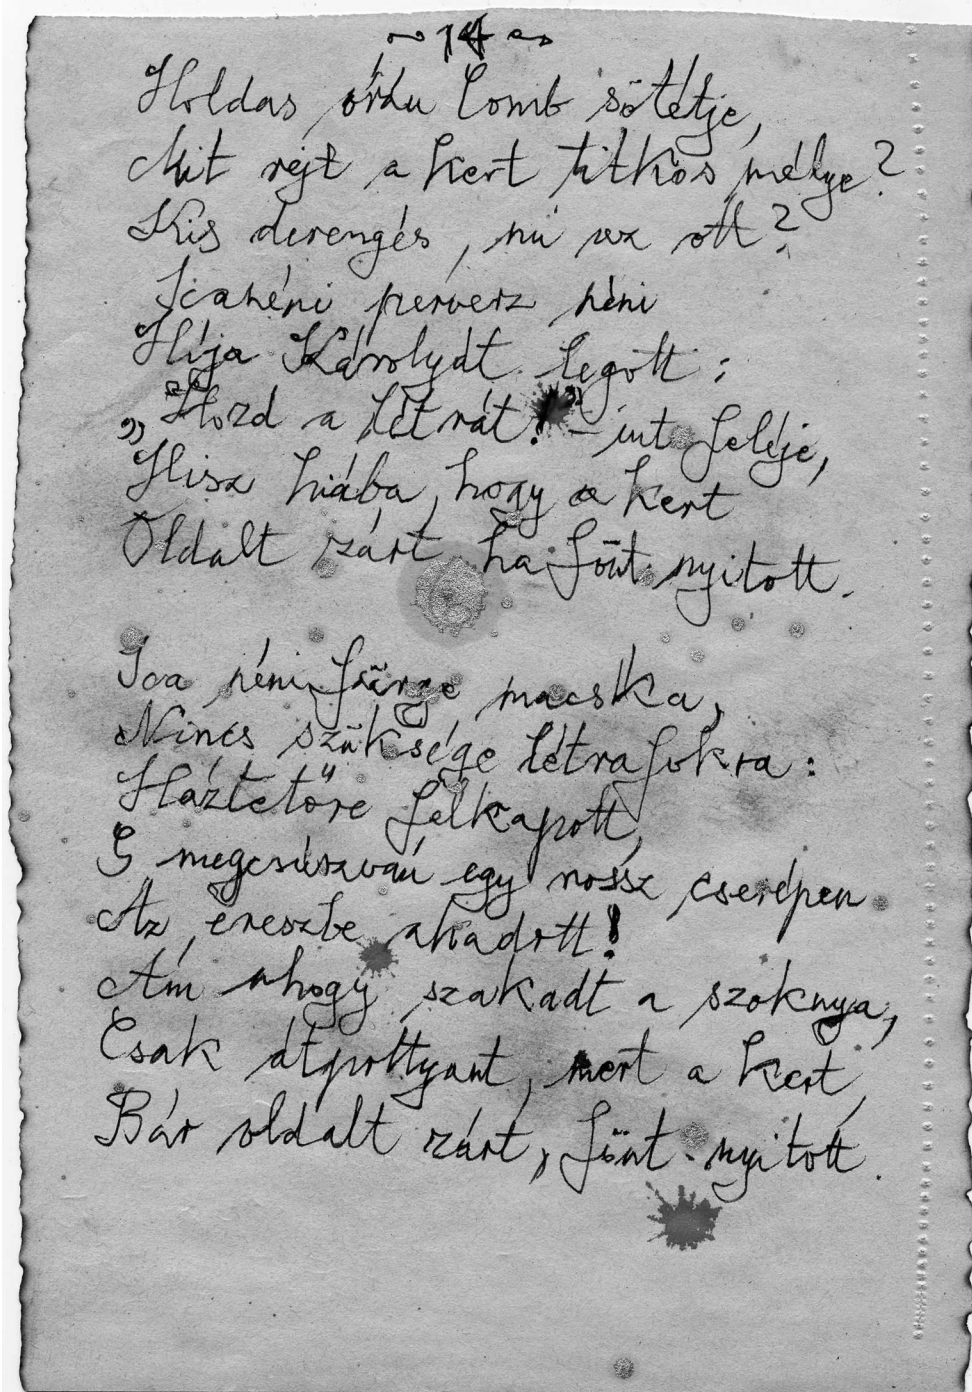 ~ 14 ~
Holdas órán lomb sötétje,
Mit rejt a kert titkos mélye?
Kis derengés, ni az ott?
Icanéni perverz néni
Hívja Károlyát legott:
„Hozd a létrát!" – int feléje,
„Hisz hiába, hogy a kert
Oldalt zárt ha fönt nyitott.
Ica néni fürge macska,
Nincs szüksége létrafokra:
Háztetőre felkapott,
S megcsúszván egy rossz cserépen
Az ereszbe akadott!
Ám ahogy szakadt a szoknya,
Csak átpottyant, mert a kert,
Bár oldalt zárt, fönt nyitott.